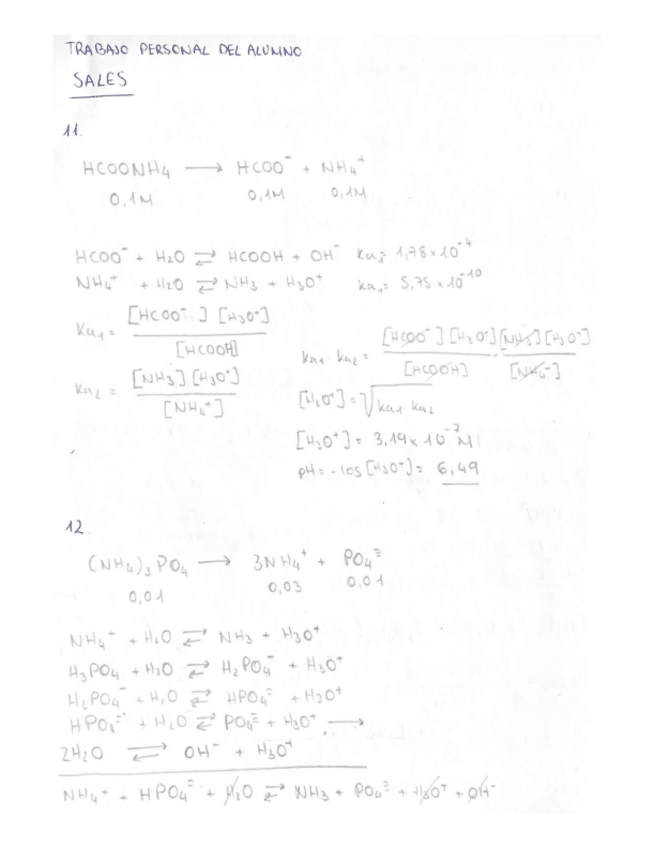 TRABAJO PERSONAL DEL ALUMNO
SALES
11.
HCOONH4 ⟶ HCOO⁻ + NH4⁺
0,1M 0,1M 0,1M
HCOO⁻ + H2O ⇄ HCOOH + OH⁻ Ka₂= 1,78×10⁻⁴
NH4⁺ + H2O ⇄ NH3 + H3O⁺ Ka₁= 5,75×10⁻¹⁰
Ka₁ = [HCOO⁻] [H3O⁺] / [HCOOH]
Ka₂ = [NH3] [H3O⁺] / [NH4⁺]
Ka₁· Ka₂ = [HCOO⁻] [H3O⁺] / [HCOOH] · [NH3] [H3O⁺] / [NH4⁺]
[H3O⁺] = √Ka₁·Ka₂
[H3O⁺] = 3,19×10⁻⁷ M
pH = -log [H3O⁺] = 6,49
12.
(NH4)3 PO4 ⟶ 3NH4⁺ + PO4≡
0,01 0,03 0,01
NH4⁺ + H2O ⇄ NH3 + H3O⁺
H3PO4 + H2O ⇄ H2PO4⁻ + H3O⁺
H2PO4⁻ + H2O ⇄ HPO4= + H3O⁺
HPO4= + H2O ⇄ PO4≡ + H3O⁺ ⟶
2H2O ⇄ OH⁻ + H3O⁺
NH4⁺ + HPO4= + H2O ⇄ NH3 + PO4≡ + H3O⁺ + OH⁻